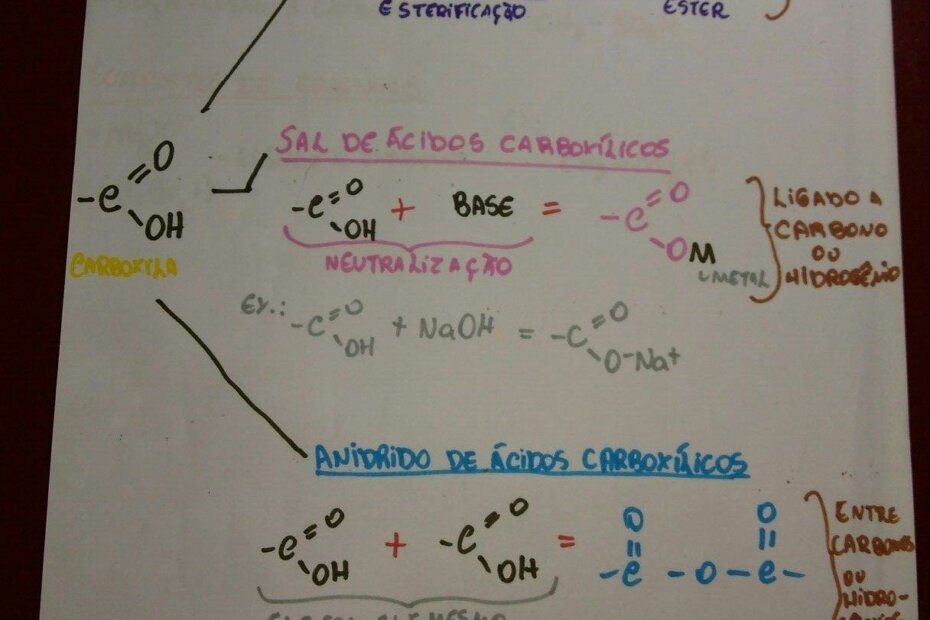 ESTERIFICAÇÃO ESTER
SAL DE ÁCIDOS CARBOXÍLICOS
-C=O OH
CARBOXYLA
-C=O OH + BASE = -C=O OM
NEUTRALIZAÇÃO
METAL
LIGADO A
CARBONO
OU
HIDROGÊNIO
EX.: -C=O OH + NaOH = -C=O O-Na+
ANIDRIDO DE ÁCIDOS CARBOXÍLICOS
-C=O OH + -C=O OH = O O
-C-O-C-
ENTRE
CARBONOS
OU
HIDRO-